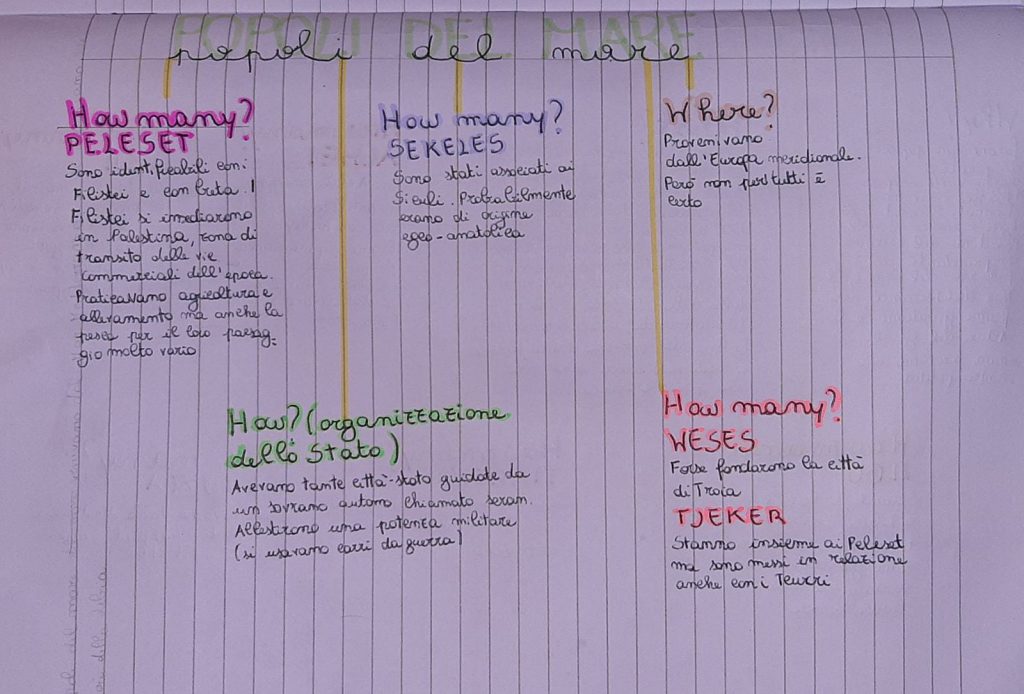 popoli del mare
How many?
PELESET
Sono identificabili con i
Filistei e con Creta. I
Filistei si insediarono
in Palestina, zona di
transito delle vie
commerciali dell'epoca.
Praticavano agricoltura e
allevamento ma anche la
pesca per il loro paesag-
gio molto vario
How many?
SEKELES
Sono stati associati ai
Siculi. Probabilmente
erano di origine
egeo-anatolica
Where?
Provenivano
dall'Europa meridionale.
Però non per tutti è
certo
How? (organizzazione
dello Stato)
Avevano tante città-stato guidate da
un sovrano autono chiamato seran.
Allestirono una potenza militare
(si usavano carri da guerra)
How many?
WESES
Forse fondarono la città
di Troia
TJEKER
Stanno insieme ai Peleset
ma sono messi in relazione
anche con i Teucri